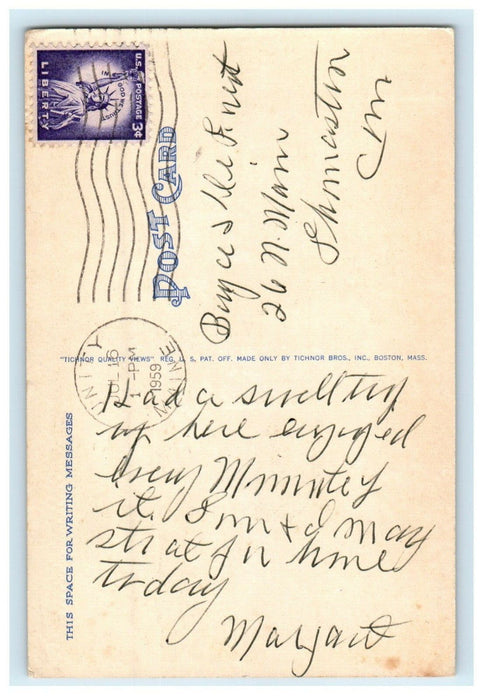 U.S. POSTAGE 3¢
IN GOD WE TRUST
LIBERTY
POST CARD
UNITY
JUL 16
PM
1959
MAINE
26 N. Main
"TICHNOR QUALITY VIEWS" REG. U. S. PAT. OFF. MADE ONLY BY TICHNOR BROS., INC., BOSTON, MASS.
THIS SPACE FOR WRITING MESSAGES
Had a swell trip
up here enjoyed
every Minute of
it. & I May
strat for home
today
Margaret